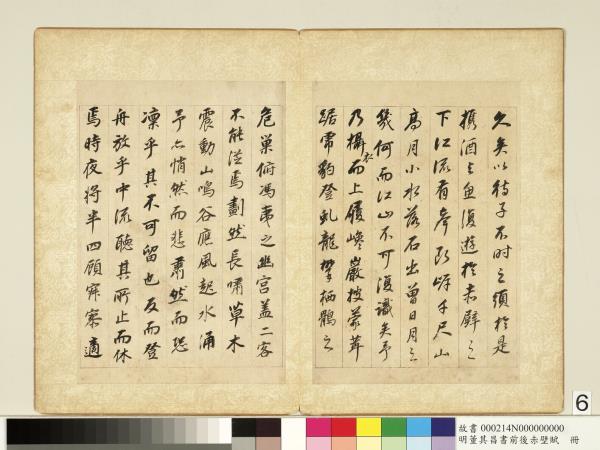 久矣以待子不時之須於是
攜酒與魚復遊於赤壁之
下江流有聲斷岸千尺山
高月小水落石出曾日月之
幾何而江山不可復識矣予
乃攝衣而上履巉巖披蒙茸
踞虎豹登虬龍攀栖鶻之
危巢俯馮夷之幽宮蓋二客
不能從焉劃然長嘯草木
震動山鳴谷應風起水涌
予亦悄然而悲肅然而恐
凜乎其不可留也反而登
舟放乎中流聽其所止而休
焉時夜將半四顧寂寥適
6
故書 000214N000000000
明董其昌書前後赤壁賦 冊